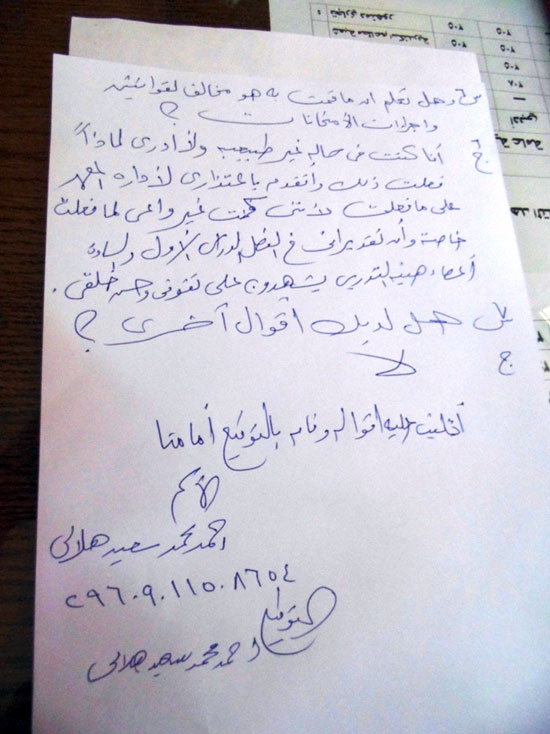 س٦ وهل تعلم ان ما قمت به هو مخالف لقوانين
واجراءات الامتحانات ؟
ج أنا كنت فى حاله غير طبيعيه ولا أدرى لماذا
فعلت ذلك وأتقدم باعتذارى لأداره المعهد
على ما فعلت لأننى كنت غير واعى لما فعلت
خاصة وأن تقديراتى فى الفصل الدراسى الأول والساده
أعضاء هيئه التدريس يشهدون على تفوقى وحسن خلقى .
س٧ هل لديك أقوال أخرى ؟
ج لا
أغلقت عليه أقواله وقام بالتوقيع أمامنا
الأسم
احمد محمد سعيد هلالى
٢٩٦٠٩٠١١٥٠٨٦٥٤
التوقيع
احمد محمد سعيد هلالى